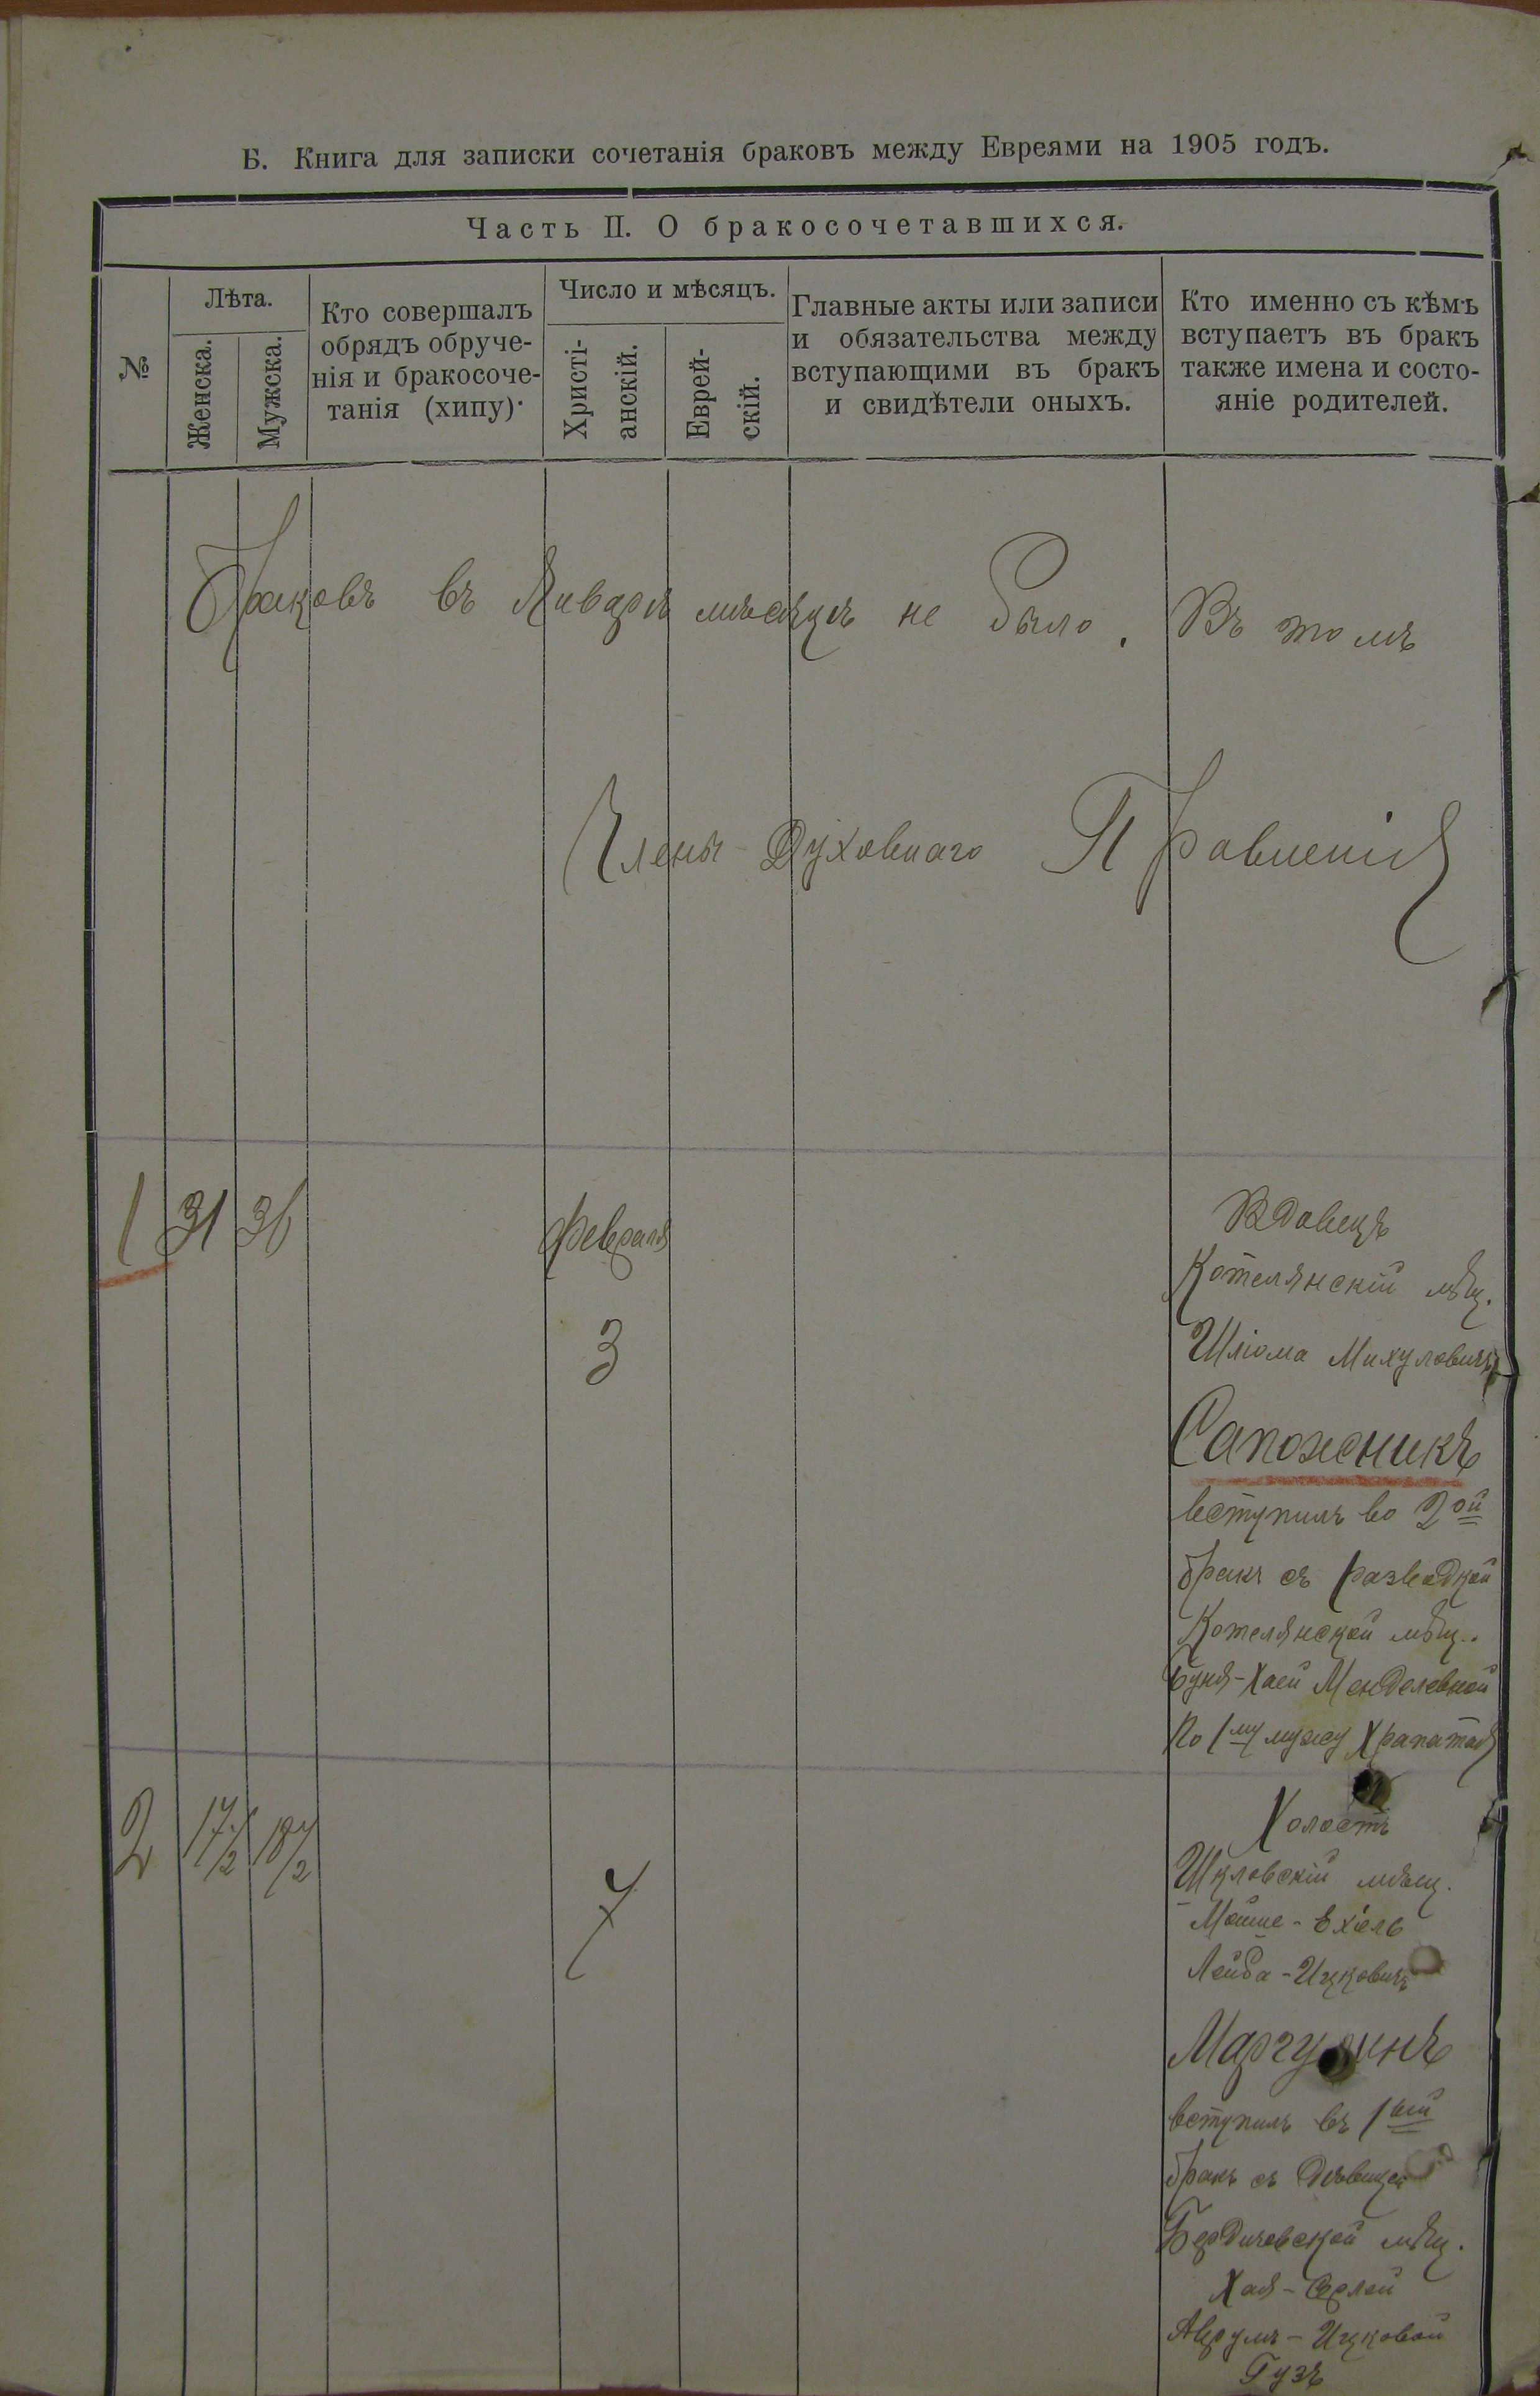 Б. Книга для записки сочетанія браковъ между Евреями на 1905 годъ.
Часть II. О бракосочетавшихся.
№
Лѣта.
Женска.
Мужска.
Кто совершалъ
обрядъ обруче-
нія и бракосоче-
танія (хипу).
Число и мѣсяцъ.
Христі-
анскій.
Еврей-
скій.
Главные акты или записи
и обязательства между
вступающими въ бракъ
и свидѣтели оныхъ.
Кто именно съ кѣмъ
вступаетъ въ бракъ
также имена и состо-
яніе родителей.
Браковъ въ Январѣ мѣсяцѣ не было. Въ томъ
Члены Духовнаго Правленія
1 31 36
Февраля
3
Вдовецъ
Котелянскій мѣщ.
Шліома Михулевичъ
Сапожникъ
вступилъ во 2ой
бракъ съ разводкой
Котелянской мѣщ.
Буня-Хаей Менделевной
По 1му мужу
2 17 1/2 18 1/2
7
Холостъ
Шкловскій мѣщ.
Мойше-Ехіель
Лейба-Ицковичъ
Маргулинъ
вступилъ въ 1ый
бракъ съ дѣвицей
Бердичевской мѣщ.
Хая-Серлей
Аврумъ-Ицковой
Гузъ